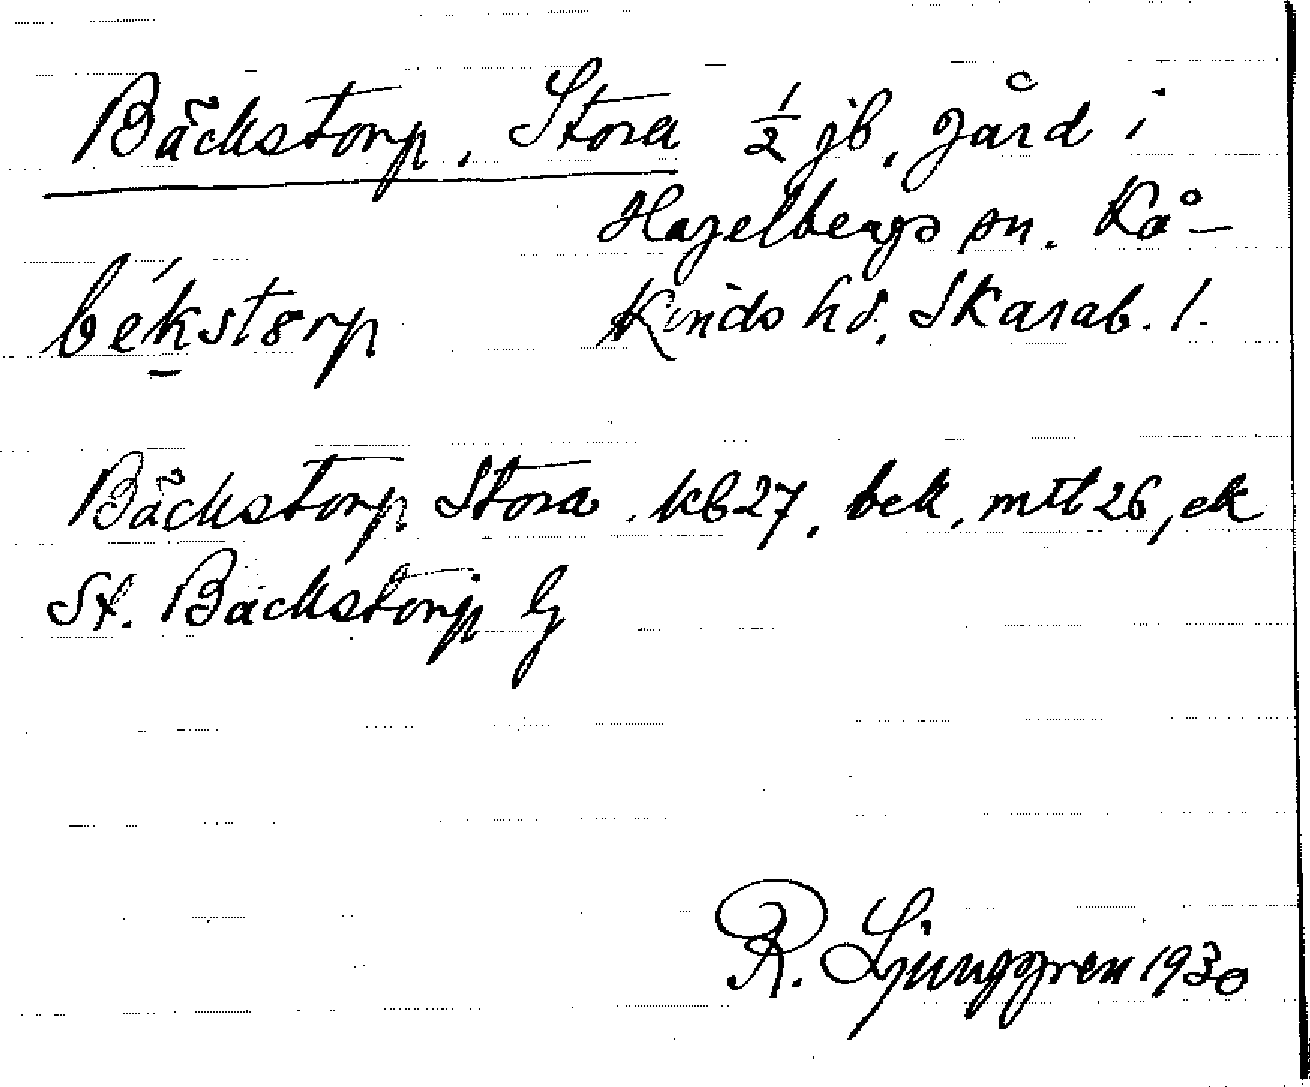 Bäckstorp, Stora ½ jb, gård i
Hagelbergs sn. Kå-
békstorp Kinds hd, Skarab. l.
Bäckstorp Stora, kb 27, bek, mtl 26, ek
St. Bäckstorp G
R. Ljunggren 1930